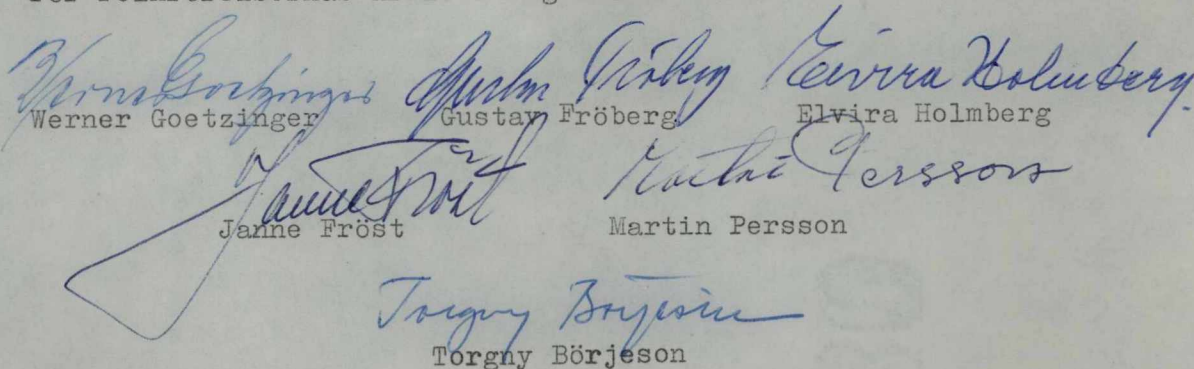 Werner Goetzinger Gustav Fröberg Elvira Holmberg
Werner Goetzinger Gustav Fröberg Elvira Holmberg
Janne Fröst Martin Persson
Janne Fröst Martin Persson
Torgny Börjeson
Torgny Börjeson